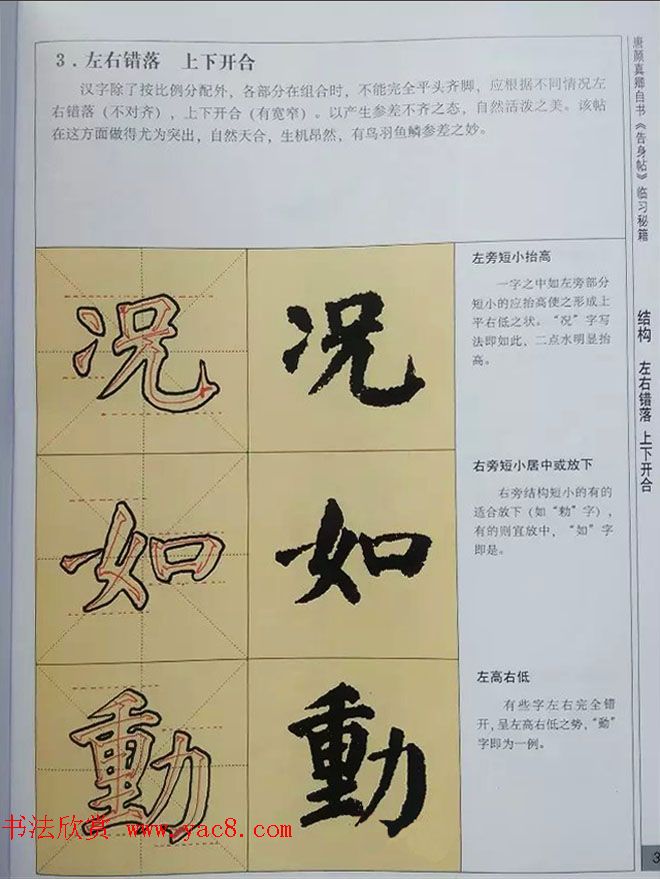 3．左右错落　上下开合
汉字除了按比例分配外，各部分在组合时，不能完全平头齐脚，应根据不同情况左
右错落（不对齐），上下开合（有宽窄）。以产生参差不齐之态，自然活泼之美。该帖
在这方面做得尤为突出，自然天合，生机昂然，有鸟羽鱼鳞参差之妙。
况
况
左旁短小抬高
一字之中如左旁部分
短小的应抬高使之形成上
平右低之状。“况”字写
法即如此，二点水明显抬
高。
如
如
右旁短小居中或放下
右旁结构短小的有的
适合放下（如“勅”字），
有的则宜放中，“如”字
即是。
動
動
左高右低
有些字左右完全错
开，呈左高右低之势，“動”
字即为一例。
唐颜真卿自书《告身帖》临习秘籍
结构　左右错落　上下开合
3
书法欣赏 www.yac8.com